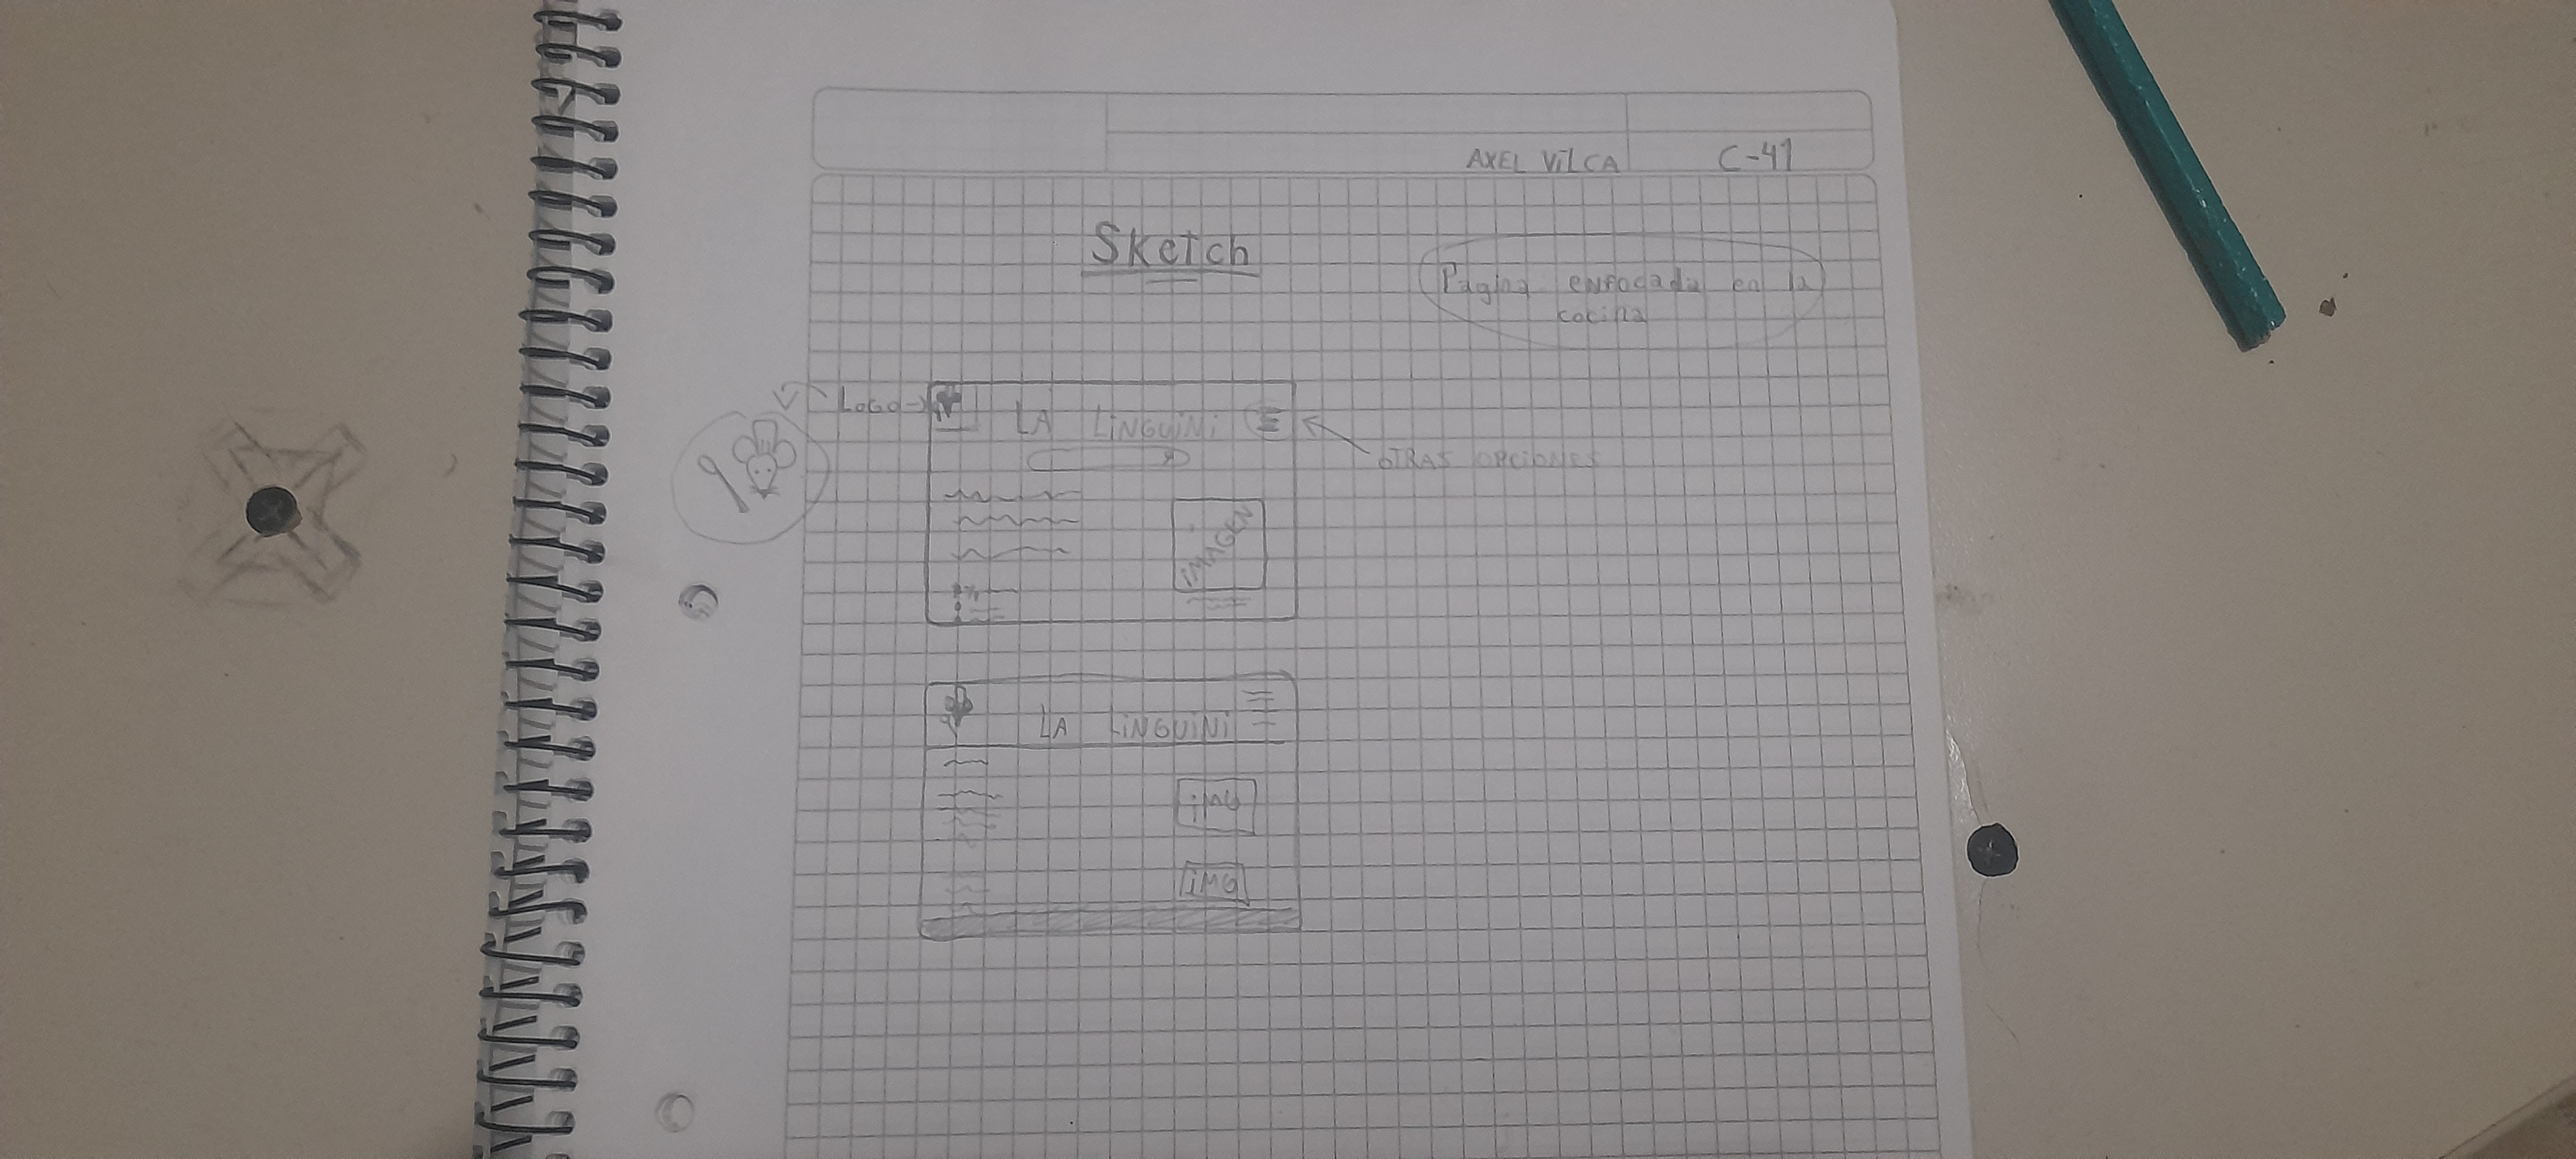 AXEL ViLCA
C-41
Sketch
Pagina enfocada en la
cocina
LOGO
LA LiNGUiNi
OTRAS OPCIONES
iMAGEN
LA LiNGUiNi
iMG
iMG